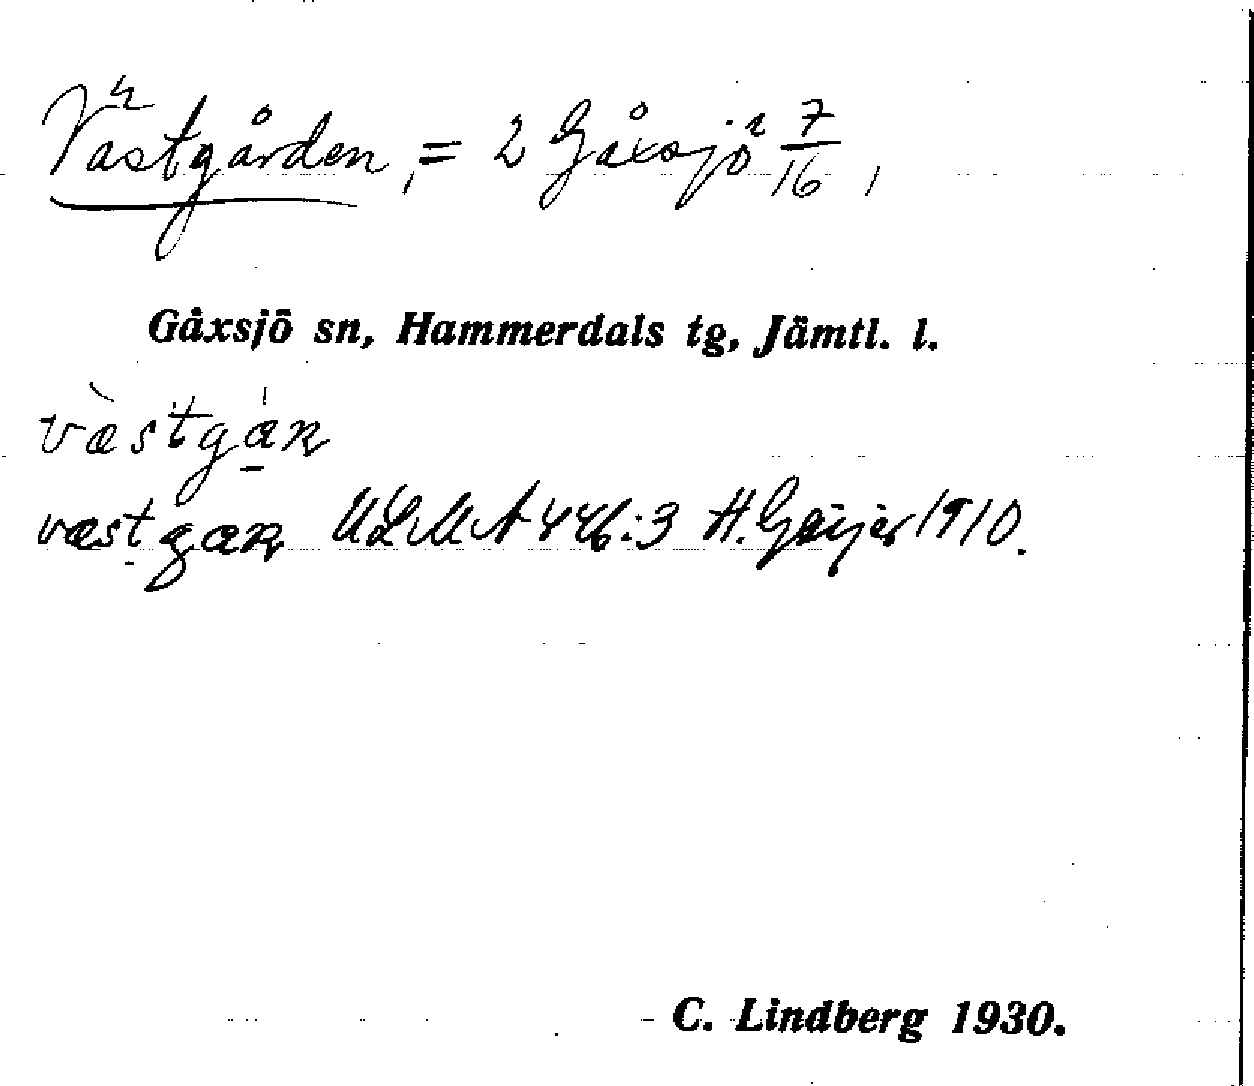 Västgården, = 2 Gåxsjö 7/16,
Gåxsjö sn, Hammerdals tg, Jämtl. l.
væ̀stgán
væstgan ULMA 446:3 H. Geijer 1910.
C. Lindberg 1930.